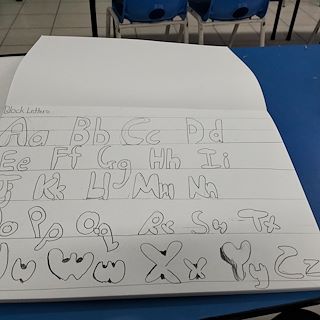 Block Letters
Aa Bb Cc Dd
Ee Ff Gg Hh Ii
Jj Kk Ll Mm Nn
Oo Pp Qq Rr Ss Tt
Uu Ww Xx Yy Zz